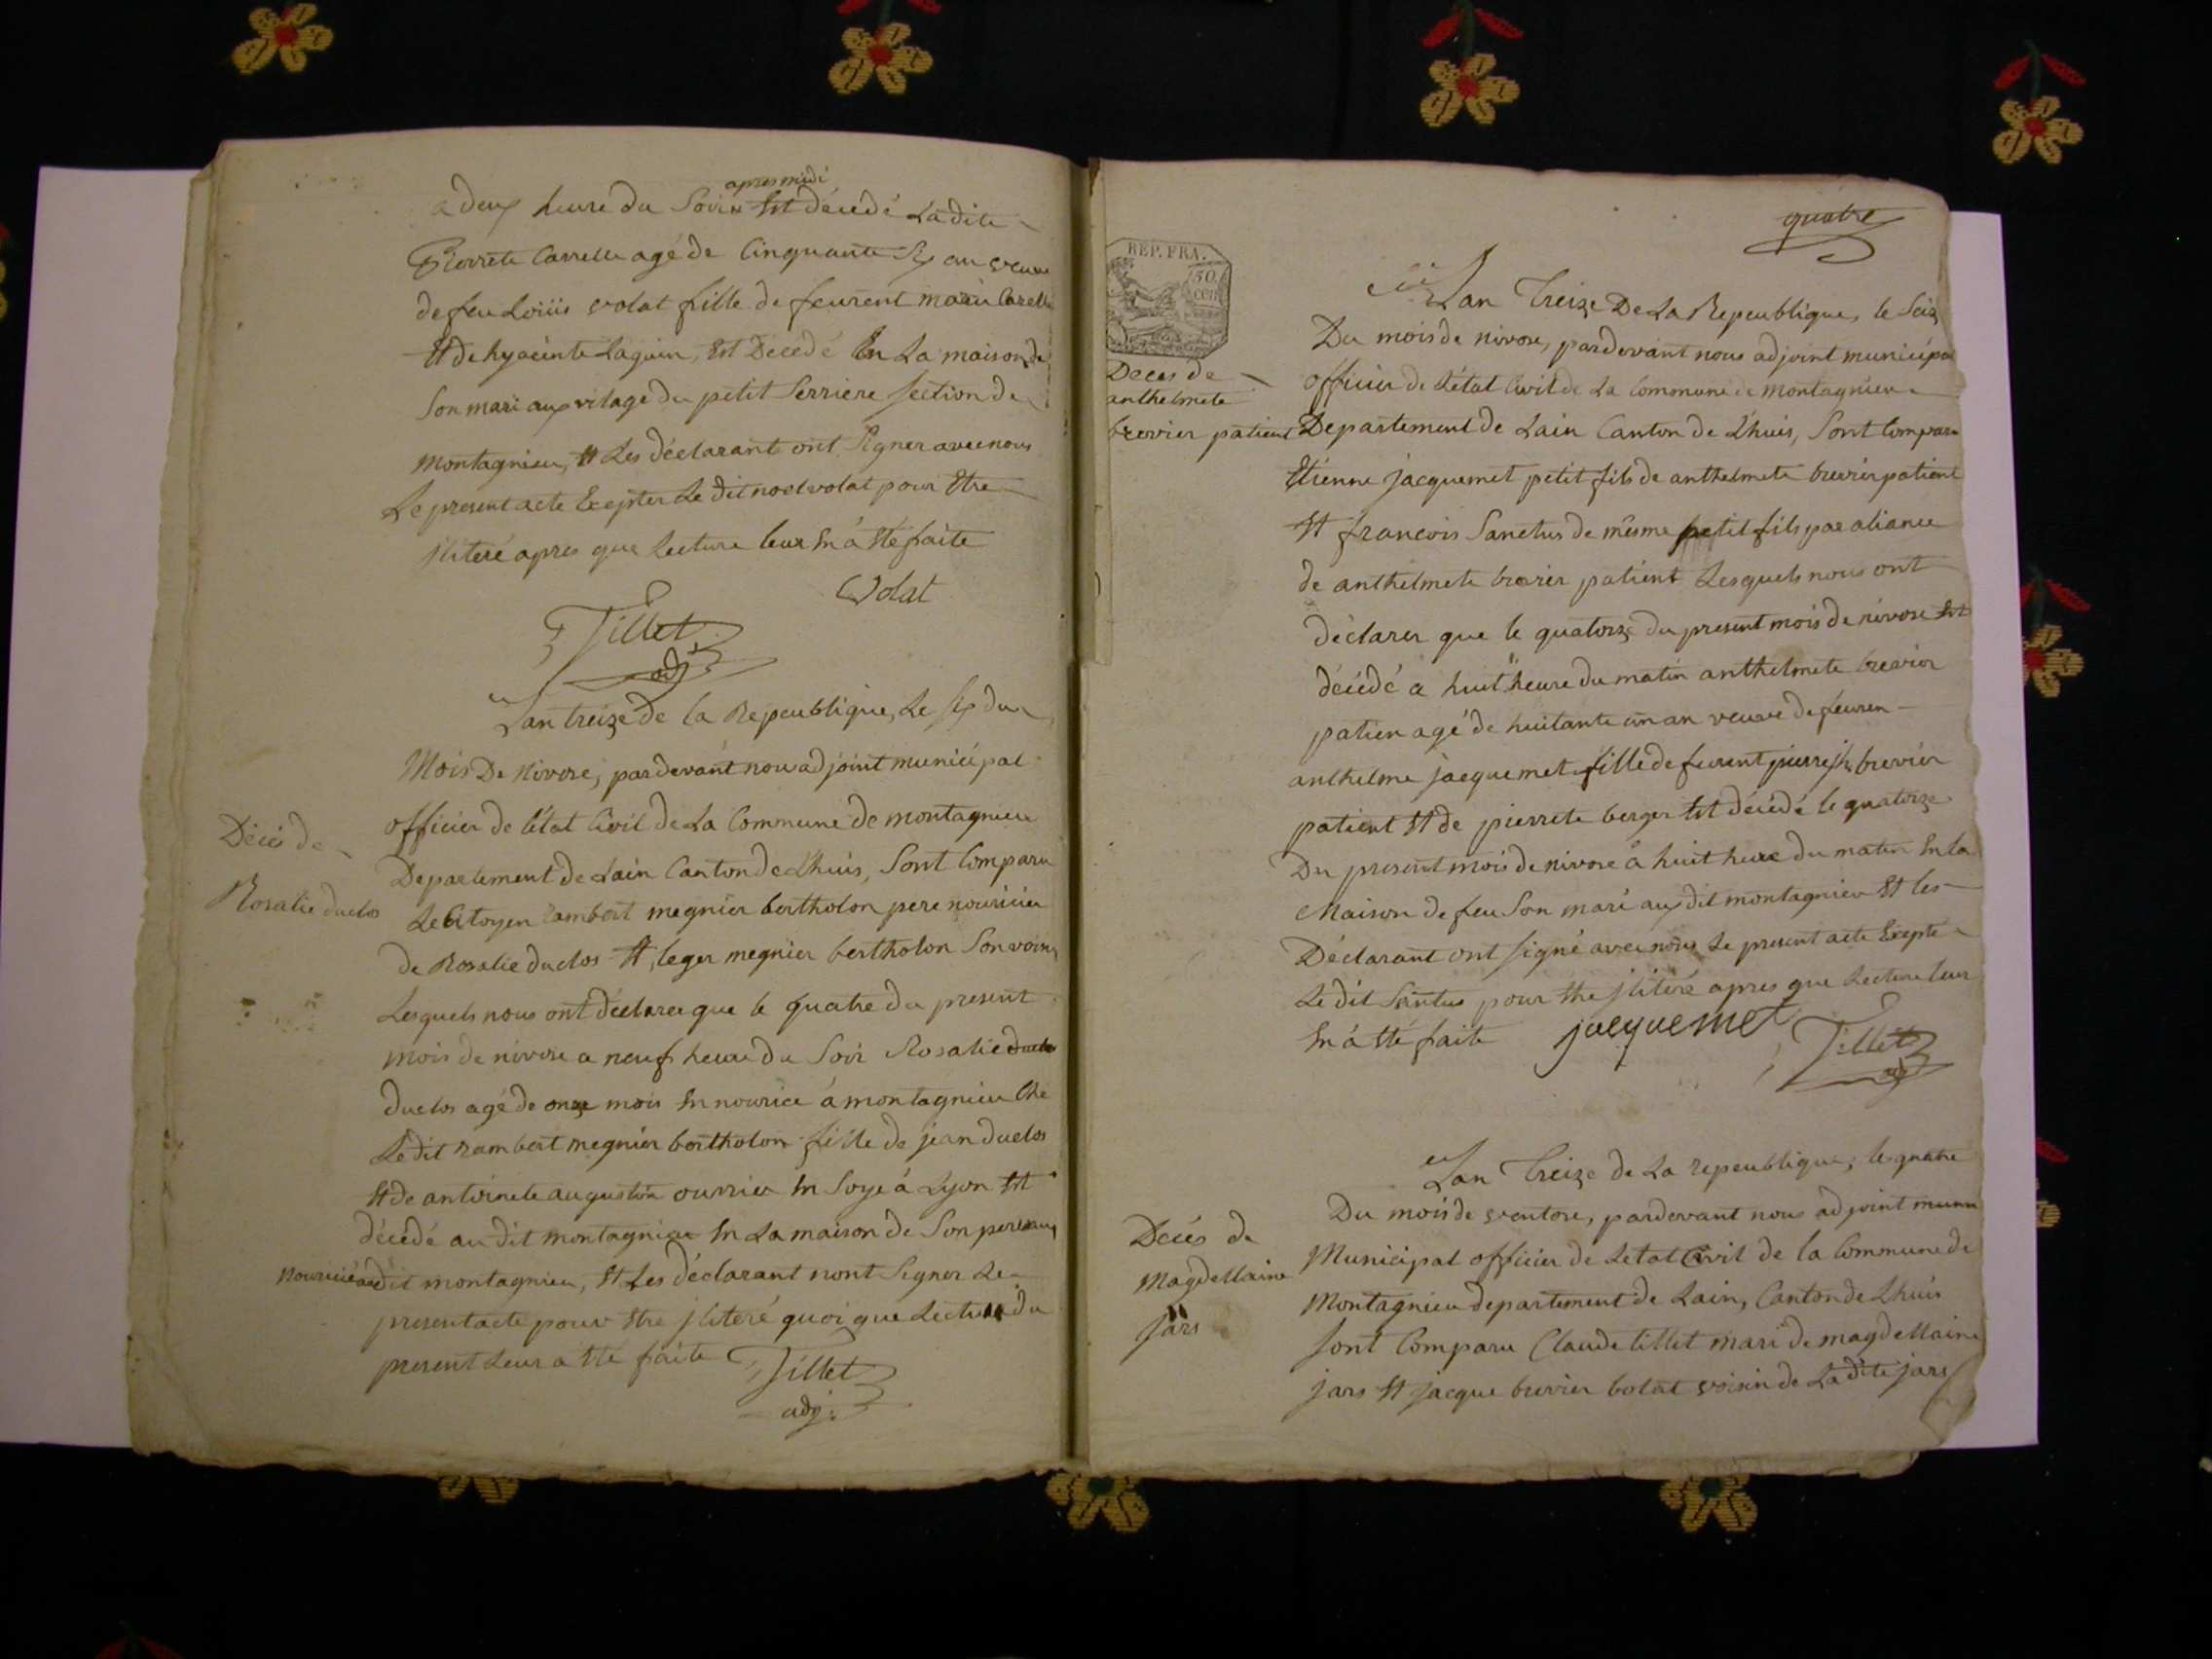 apres midi
a deux heure du Soir Est décedé Ladite
Pierrete Carrelle agé de Cinquante Six an veuve
de feu Loüis volat fille de feurent marin Carelle
Et de hyacinte Laguin, Est Décedé En La maison de
Son mari aux vilage du petit Serriere Section de
montagnieu, Et Les déclarant ont Signer avec nous
Le present acte Exepter Le dit noel volat pour Etre
jliteré apres que Lecture leur En á Eté faite
Volat
Tillet
adj
Lan treize de la Republique, Le six du
Mois De Nivose, pardevant nous adjoint municipal
officier de l'état Civil de La Commune de montagnieu
Décés de
Departement de Lain Canton de Lhuis, Sont Comparu
Rosalie duclos
Le Citoyen rambert megnier bertholon pere nouricier
de Rosalie duclos Et, leger megnier bertholon Son voisin
Lesquels nous ont déclarer que le quatre du present
mois de nivose a neuf heure du Soir Rosalie duclos
duclos agé de onze mois En nourice á montagnieu Ché
Ledit rambert megnier bertholon fille de jean duclos
Et de antoinete augustin ouvrier En Soye á Lyon Est
décedé au dit montagnieu En La maison de Son pere aux
Nouricié audit montagnieu, Et Les déclarant nont Signer Le
present acte pour Etre jliteré quoi que Lecture du
present Leur a Eté faite
Tillet
adj:
quatre
REP. FRA.
50
cen
Lan Treize De La Republique, le Seize
Du mois de nivose, pardevant nous adjoint municipal
Deces de
anthelmete
brevier patient
officier de L'état Civil de La Commune de montagnieu
Departement de Lain Canton de Lhuis, Sont Comparu
Etienne jacquemet petit fils de anthelmete brevier patient
Et francois Sanctus de même petit fils par aliance
de anthelmete brevier patient Lesquels nous ont
déclarer que le quatorze du present mois de nivose Est
décédé a huit heure du matin anthelmete brevier
patien agé de huitante un an veuve de feuren
anthelme jacquemet fille de feurent pierre jh brevier
patient Et de pierrete berger Est décédé le quatorze
Du present mois de nivose a huit heure du matin En la
Maison de feu Son mari aux dit montagnieu Et les
Déclarant ont Signé avec nous Le present acte Exepte
Le dit Sintus pour Etre jliteré apres que Lecture leur
En á Eté faite
jacquemet
Tillet
adj
Lan Treize de La republique, le quatre
Du mois de ventose, pardevant nous adjoint munu
Decés de
Magdellaine
Jars
Municipal officier de Letat Civil de la Commune de
Montagnieu departement de Lain, Canton de Lhuis
Sont Comparu Claude tillet mari de magdellaine
jars Et jacque brevier bolat voisin de Ladite jars